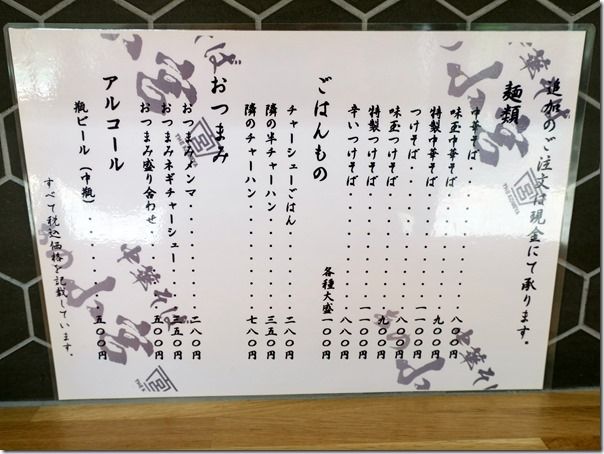 追加のご注文は現金にて承ります。
麺類
中華そば・・・・・・・・八〇〇円
味玉中華そば・・・・・・九〇〇円
特製中華そば・・・・・・一一〇〇円
つけそば・・・・・・・・八〇〇円
味玉つけそば・・・・・・九〇〇円
特製つけそば・・・・・・一一〇〇円
辛いつけそば・・・・・・八八〇円
各種大盛 一〇〇円
ごはんもの
チャーシューごはん・・・・二八〇円
隣の半チャーハン・・・・・三五〇円
隣のチャーハン・・・・・・七八〇円
おつまみ
おつまみメンマ・・・・・・二八〇円
おつまみネギチャーシュー・・三五〇円
おつまみ盛り合わせ・・・・五〇〇円
アルコール
瓶ビール（中瓶）・・・・・五〇〇円
すべて税込価格を記載しています。